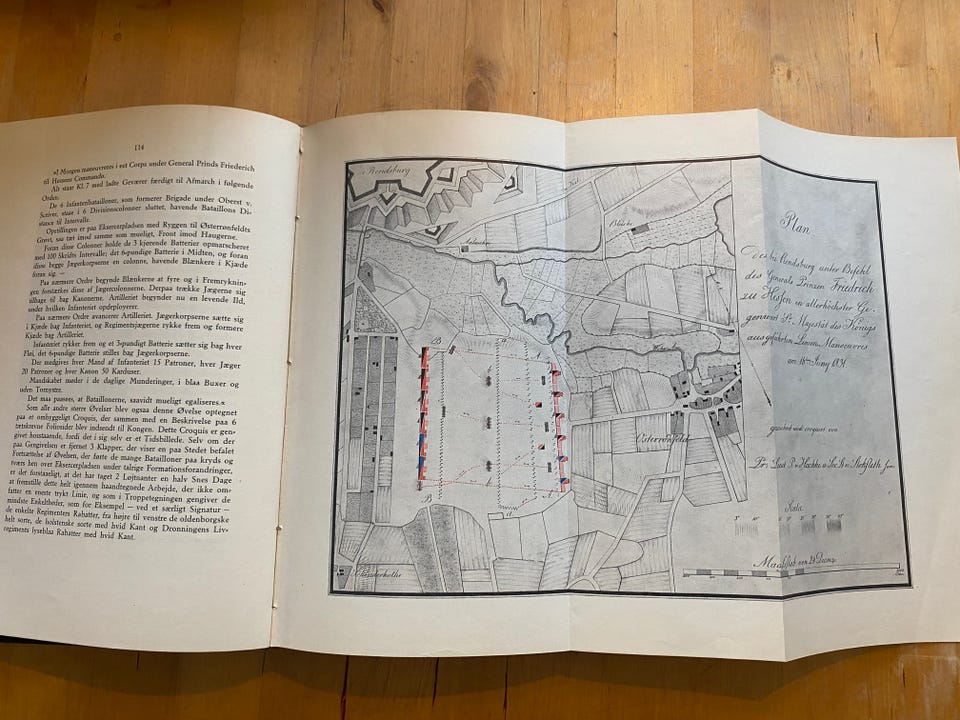 114
»I Morgen manøuvreres i eet Corps under General Prinds Friederich
til Hessens Commando.
Alt staar Kl. 7 med ladte Geværer færdigt til Afmarch i følgende
Orden.
De 6 Infanteribatailloner, som formerer Brigade under Oberst v.
Scriver, staae i 6 Divisionscolonner sluttet, havende Bataillons Di-
stance til Intervalle.
Opstillingen er paa Exercerpladsen med Ryggen til Østerrønfeldts
Grøvt, saa tæt imod samme som mueligt, Front imod Haugerne.
Foran disse Colonner holde de 3 kjørende Batterier opmarscheret
med 100 Skridts Intervalle; det 6-pundige Batterie i Midten, og foran
disse begge Jægerkorpserne en colonne, havende Blænkere i Kjæde
foran sig. —
Paa nærmere Ordre begynde Blænkerne at fyre og i Fremryknin-
gen forstærkes disse af Jægercolonnerne. Derpaa trække Jægerne sig
tilbage til bag Kanonerne. Artilleriet begynder nu en levende Ild,
under hvilken Infanteriet opdeployerer.
Paa nærmere Ordre avancerer Artilleriet. Jægerkorpserne sætte sig
i Kjæde bag Infanteriet, og Regimentsjægerne rykke frem og formere
Kjæde bag Artilleriet.
Infanteriet rykker frem og et 3-pundigt Batterie sætter sig bag hver
Fløi, det 6-pundige Batterie stilles bag Jægerkorpserne.
Der medgives hver Mand af Infanteriet 15 Patroner, hver Jæger
20 Patroner og hver Kanon 50 Karduser.
Mandskabet møder i de daglige Munderinger, i blaa Buxer og
uden Tornystre.
Det maa passes, at Bataillonerne, saavidt mueligt egaliseres.«
Som alle andre større Øvelser blev ogsaa denne Øvelse optegnet
paa et omhyggeligt Croquis, der sammen med en Beskrivelse paa 6
tætskrevne Foliosider blev indsendt til Kongen. Dette Croquis er gen-
givet hosstaaende, fordi det i sig selv er et Tidsbillede. Selv om der
paa Gengivelsen er fjernet 3 Klapper, der viser en paa Stedet befalet
Fortsættelse af Øvelsen, der førte de mange Batailloner paa kryds og
tværs hen over Eksercerpladsen under talrige Formationsforandringer,
er det forstaaeligt, at det har taget 2 Løjtnanter en halv Snes Dage
at fremstille dette helt igennem haandtegnede Arbejde, der ikke om-
fatter en eneste trykt Linie, og som i Troppetegningen gengiver de
mindste Enkeltheder, som for Eksempel — ved et særligt Signatur —
de enkelte Regimenters Rabatter, fra højre til venstre de oldenborgske
helt sorte, de holstenske sorte med hvid Kant og Dronningens Liv-
regiments lyseblaa Rabatter med hvid Kant.
Rendsburg
Osterrönfeld
B
a
A
B
A
a
Plan
des bei Rendsburg unter Befehl
des Generals Prinzen Friedrich
zu Hessen in allerhöchster Ge-
genwart Sr. Majestät des Königs
ausgeführten Linien Manoeuvres
am 16ten Juny 1831
Scala